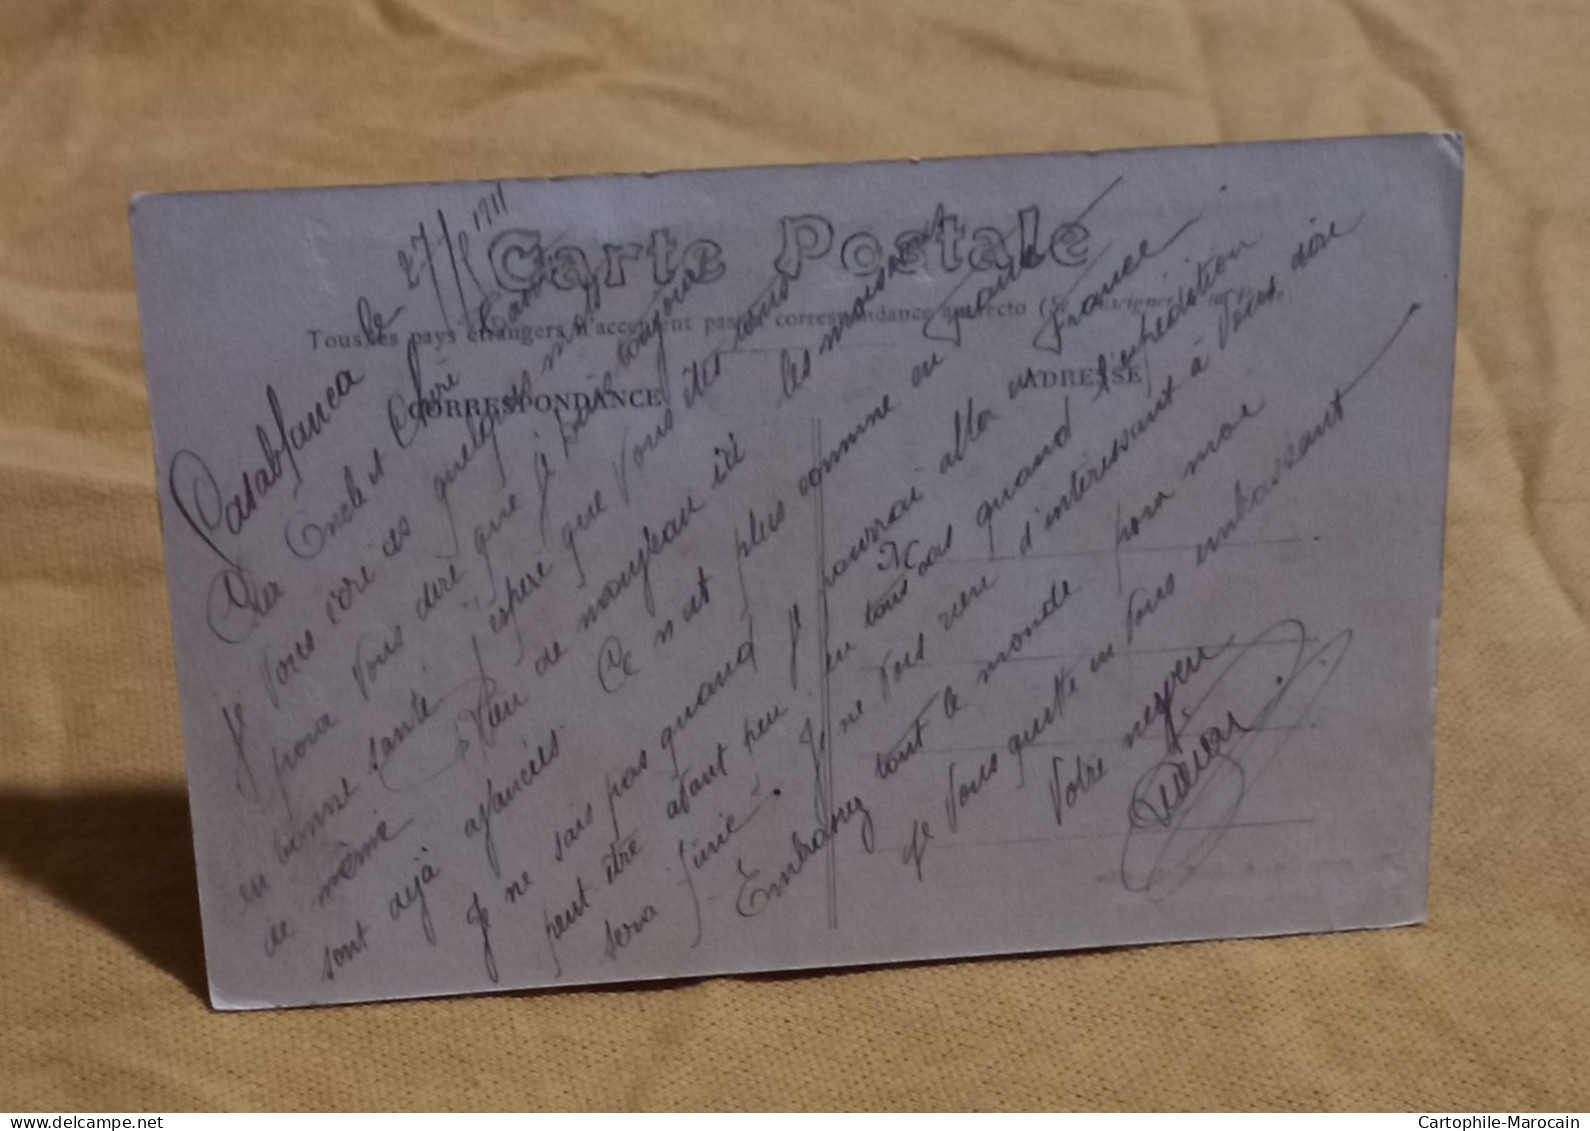 Carte Postale
Tous les pays étrangers n'acceptent pas la correspondance au recto (Se renseigner à la Poste)
CORRESPONDANCE
ADRESSE
Casablanca le 27/ 1911
Cher Oncle et Chère
Je Vous écris ces quelques mots
pour Vous dire que je suis toujours
en bonne santé j'espère que Vous êtes tous
de même Rien de nouveau ici les moissons
sont déjà avancées Ce n'est plus comme en France
Je ne sais pas quand je pourrai aller en France
peut être avant peu en tous cas quand l'expédition
sera finie. Je ne Vous rien d'intéressant à Vous dire
Embrassez tout le monde pour moi
Je Vous quitte en Vous embrassant
Votre neveu
Cartophile-Marocain